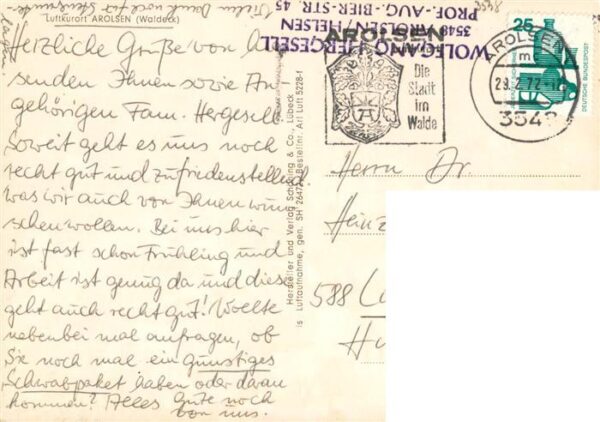 Luftkurort AROLSEN (Waldeck)
Vielen Dank noch für
Herzliche Grüße von hier
senden Ihnen sowie An
gehörigen Fam. Hergesell.
Soweit geht es uns noch
recht gut und zufriedenstellend
was wir auch von Ihnen wün
schen wollen. Bei uns hier
ist fast schon Frühling und
Arbeit ist genug da und dies
geht auch recht gut! Wollte
nebenbei mal anfragen, ob
Sie noch mal ein günstiges
Schwabpaket haben oder daran
kommen? Alles Gute noch
von uns.
Hersteller und Verlag Schöning & Co., Lübeck
Luftaufnahme, gen. SH Bestellnr. Arl Luft 5228-f
WOLFGANG HERGESELL
3548 AROLSEN / HELSEN
PROF.-AUG.-BIER-STR. 45
3548
AROLSEN
Die
Stadt
im
Walde
AROLSEN
m
72
3548
25
DEUTSCHE BUNDESPOST
Herrn Dr.
Heinz
588